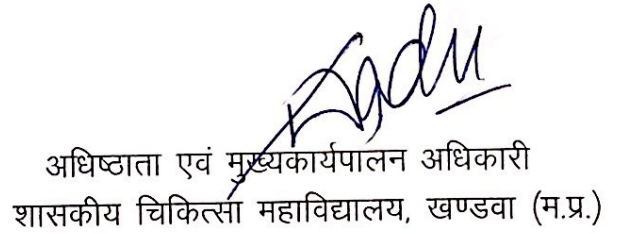 अधिष्ठाता एवं मुख्यकार्यपालन अधिकारी
शासकीय चिकित्सा महाविद्यालय, खण्डवा (म.प्र.)